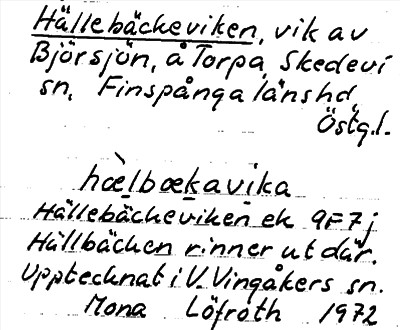 Hällebäckeviken, vik av
Björsjön, å Torpa, Skedevi
sn, Finspånga länshd,
Östg.l.
hæ̀lbœkavika
Hällebäckeviken ek 9F7j
Hällbäcken rinner ut där.
Upptecknat i V. Vingåkers sn.
Mona Löfroth 1972